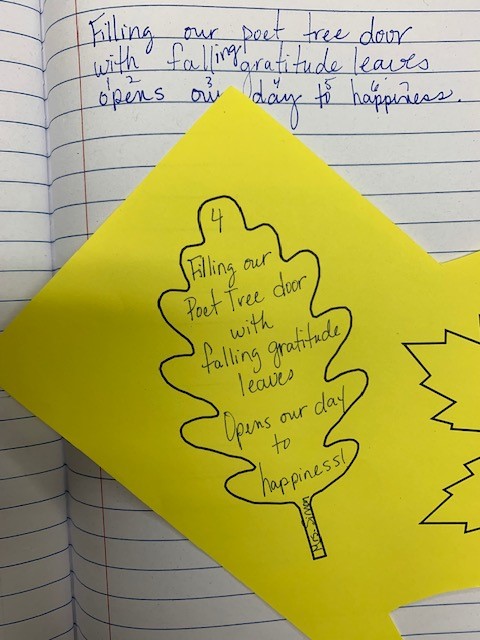 Filling our poet tree door
with falling gratitude leaves
1 2 3 4 5 6 7
opens our day to happiness.
4
Filling our
Poet Tree door
with
falling gratitude
leaves
Opens our day
to
happiness!
Mrs.